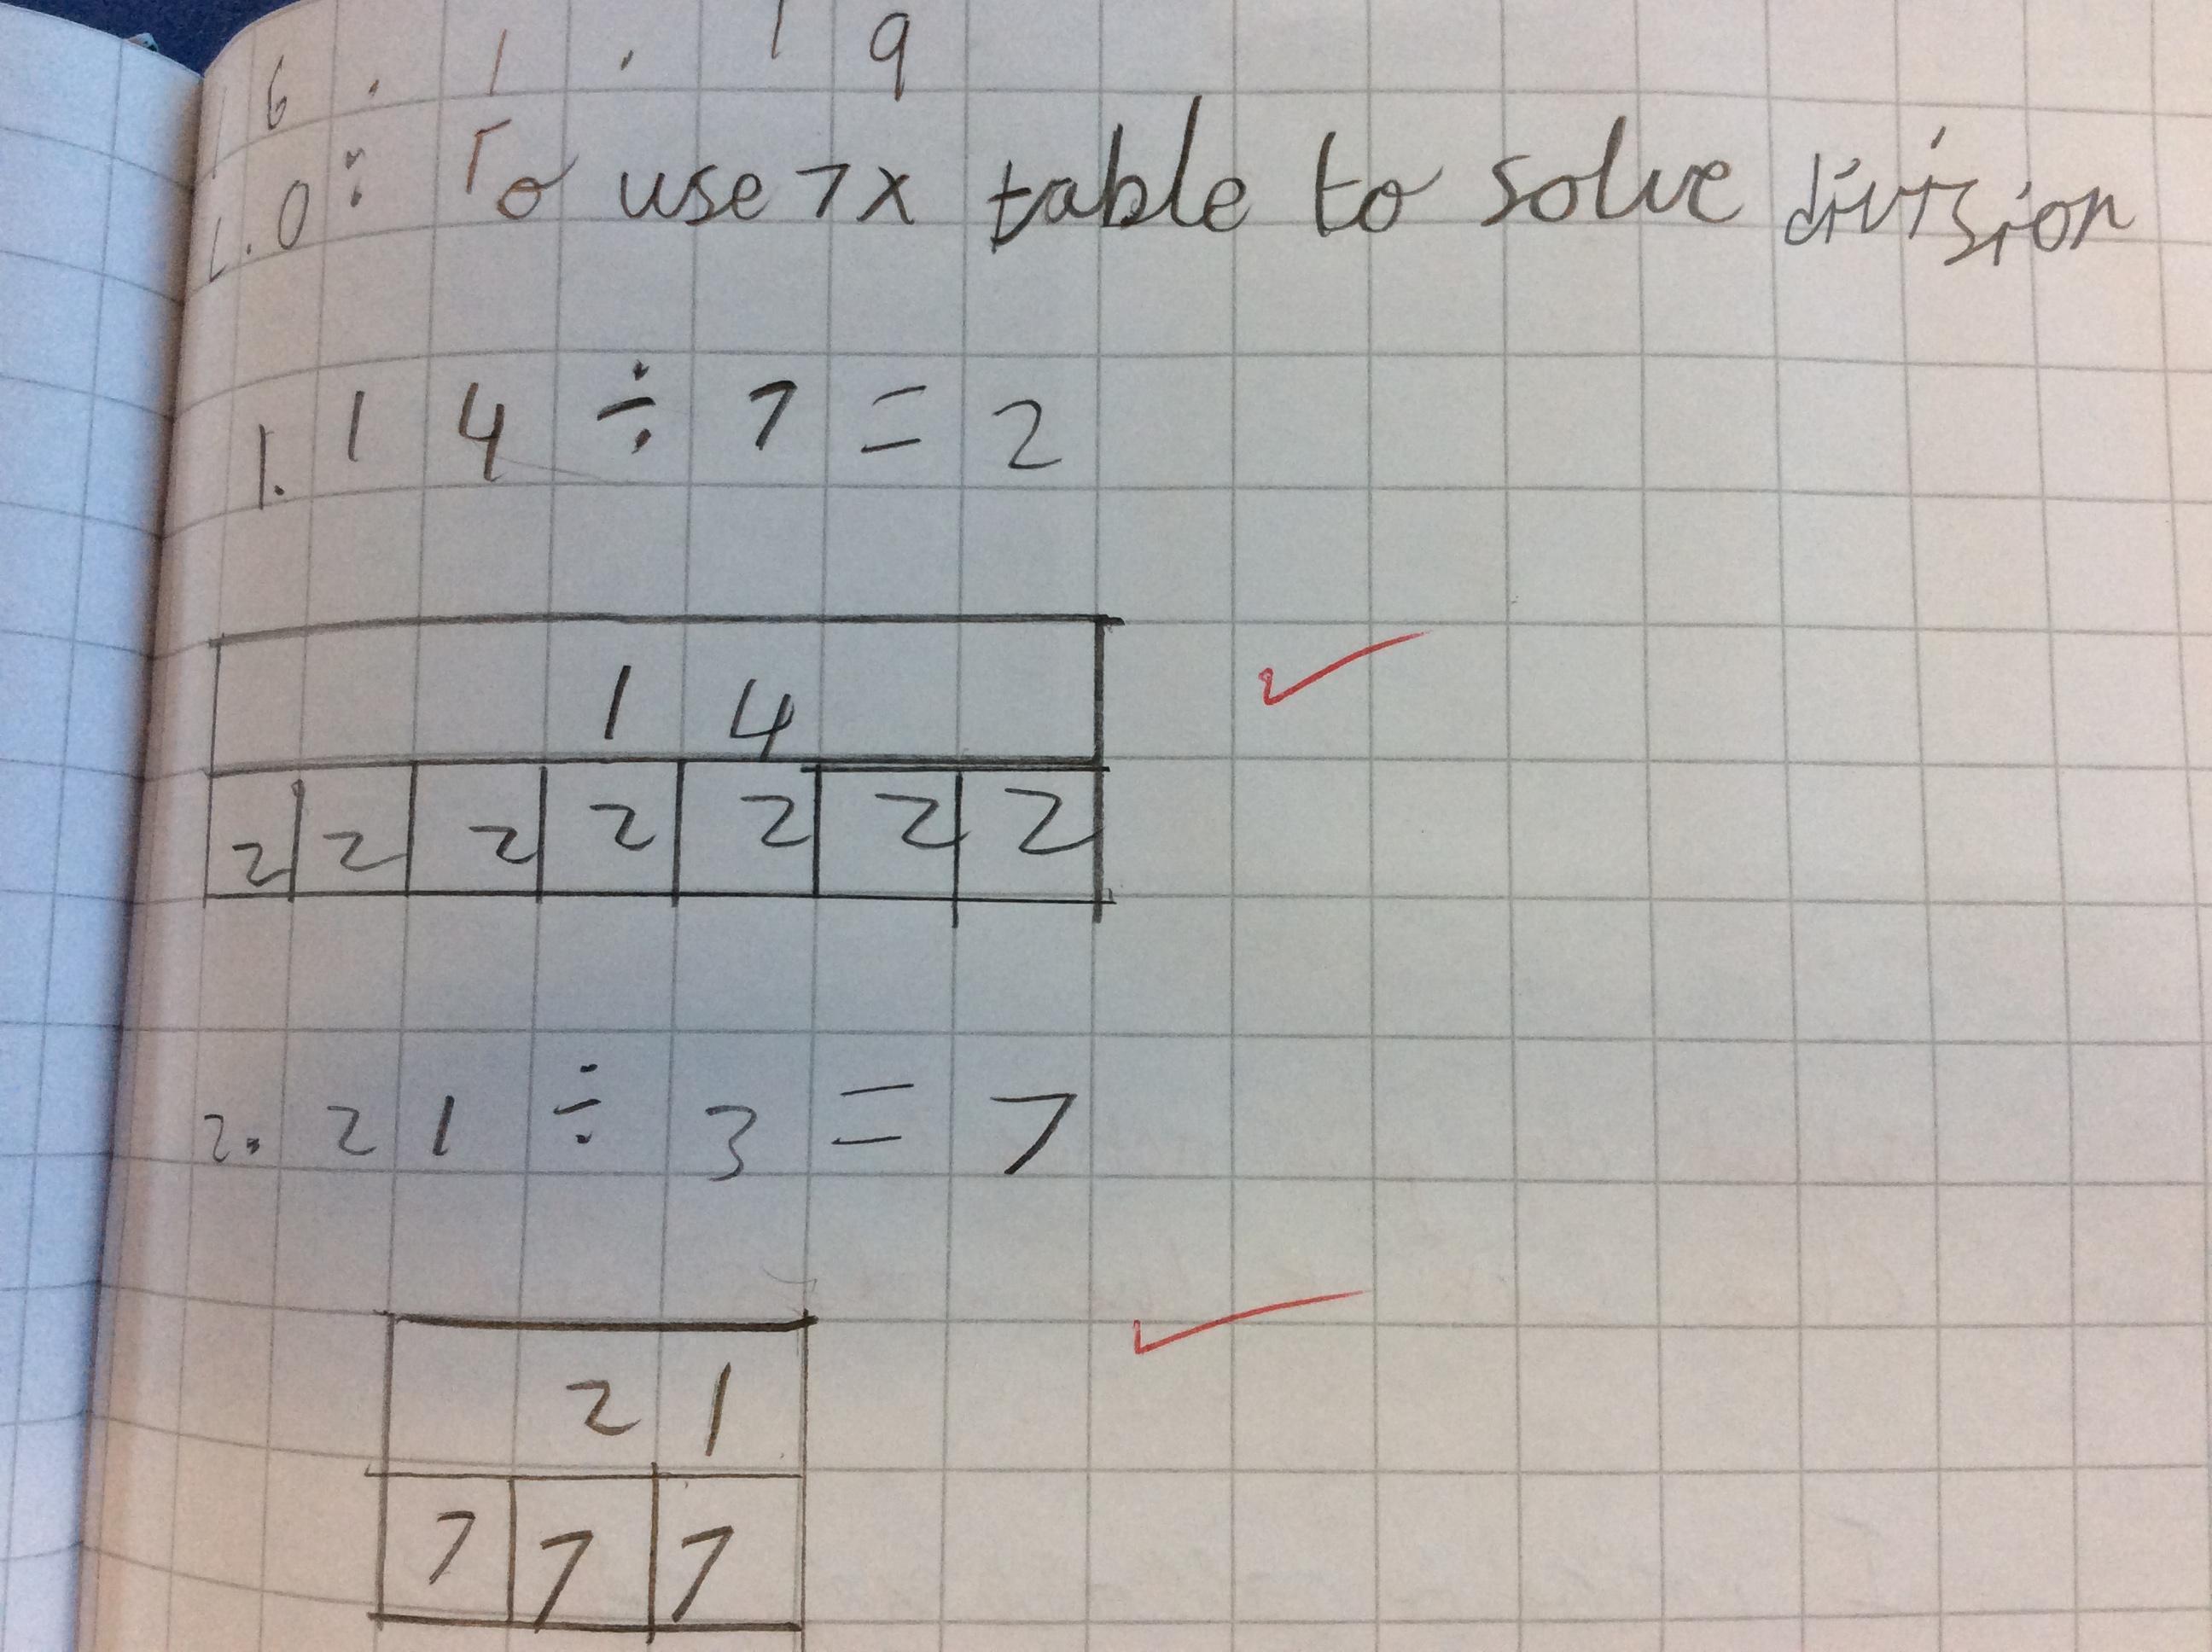 16.1.19
L.O: To use 7x table to solve division
1. 14 ÷ 7 = 2
14
2 2 2 2 2 2 2
2. 21 ÷ 3 = 7
21
7 7 7